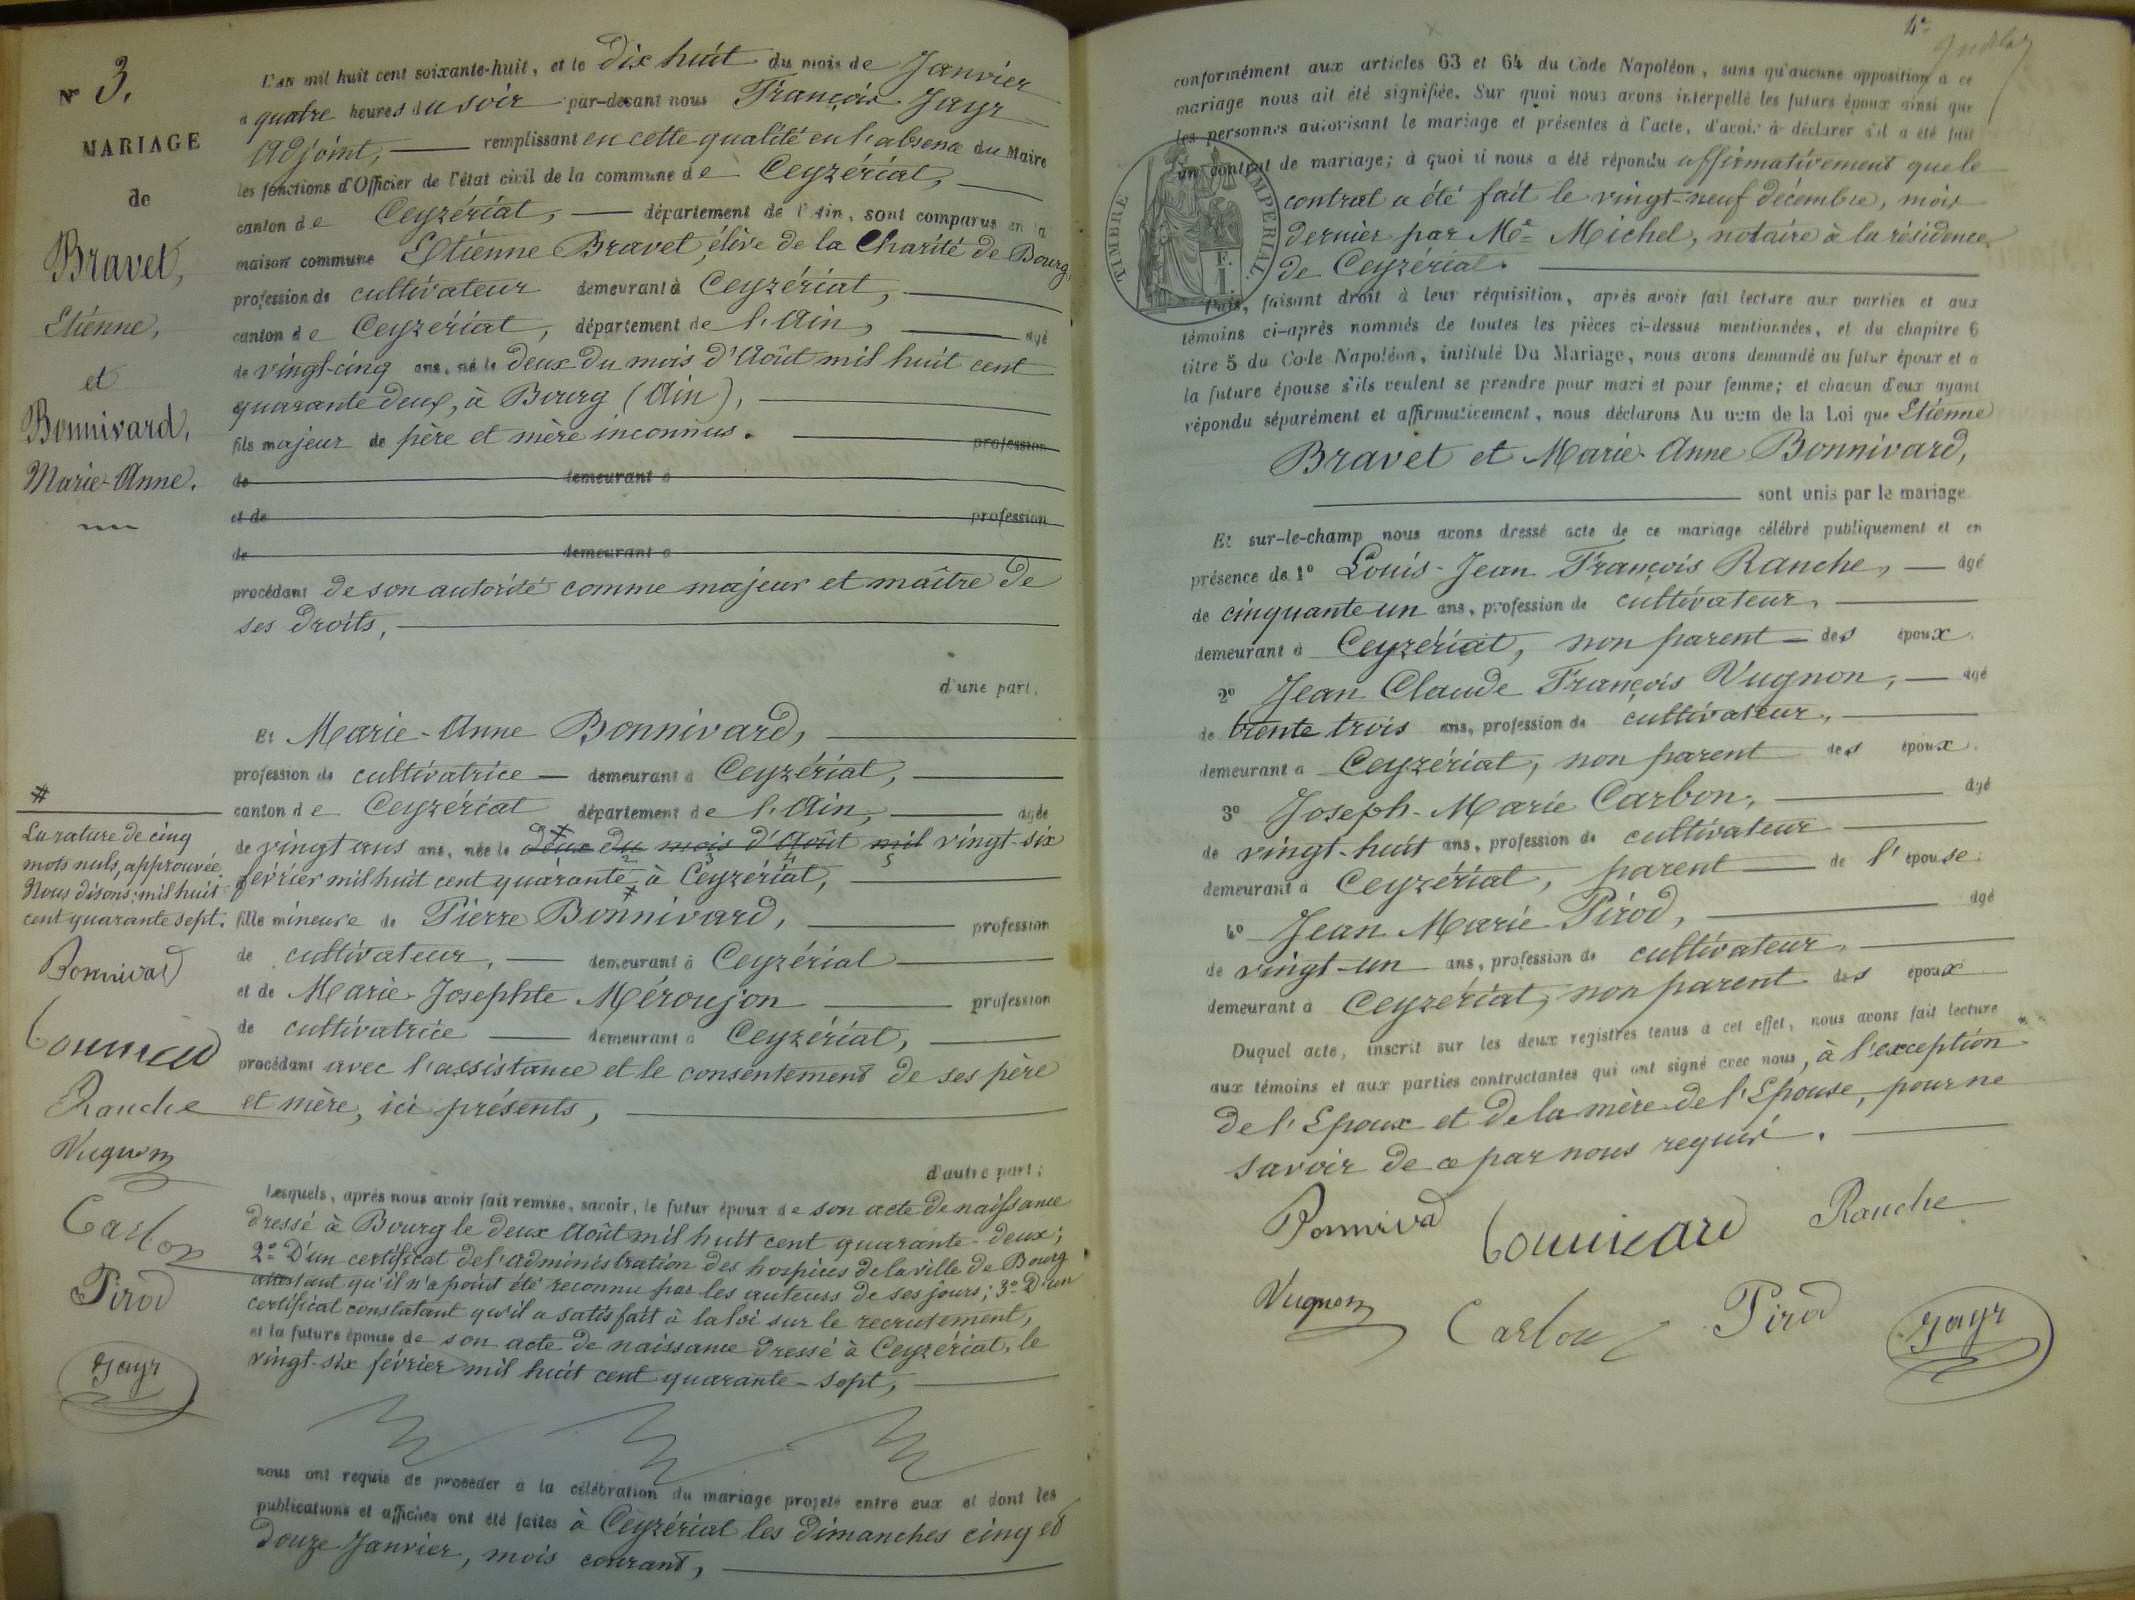 N° 3.
MARIAGE
de
Bravet,
Etienne,
et
Bonnivard,
Marie-Anne.
L'an mil huit cent soixante-huit, et le dix huit du mois de Janvier
à quatre heures du soir par-devant nous François Jayr
Adjoint, remplissant en cette qualité en l'absence du Maire
les fonctions d'Officier de l'état civil de la commune de Ceyzériat,
canton de Ceyzériat, département de l'Ain, sont comparus en la
maison commune Etienne Bravet, élève de la Charité de Bourg,
profession de cultivateur demeurant à Ceyzériat,
canton de Ceyzériat, département de l'Ain, agé
de vingt-cinq ans, né le deux du mois d'Août mil huit cent
quarante deux, à Bourg (Ain),
fils majeur de père et mère inconnus. profession
de demeurant à
et de profession
de demeurant à
procédant de son autorité comme majeur et maître de
ses droits,
d'une part,
Et Marie-Anne Bonnivard,
profession de cultivatrice demeurant à Ceyzériat,
canton de Ceyzériat département de l'Ain, agée
de vingt ans ans, née le deux du mois d'Août mil vingt-six
février mil huit cent quarante à Ceyzériat,
fille mineure de Pierre Bonnivard, profession
de cultivateur, demeurant à Ceyzériat
et de Marie-Josephte Méroujon profession
de cultivatrice demeurant à Ceyzériat,
procédant avec l'assistance et le consentement de ses père
et mère, ici présents,
d'autre part;
#
La rature de cinq
mots nuls, approuvée.
Nous disons: mil huit
cent quarante sept.
Bonnivad
Ranche
Vugnon
Carbon
Pirod
Jayr
Lesquels, après nous avoir fait remise, savoir, le futur époux de son acte de naissance
dressé à Bourg le deux Août mil huit cent quarante-deux;
2° D'un certificat de l'administration des hospices de la ville de Bourg
attestant qu'il n'a point été reconnu par les auteurs de ses jours; 3° D'un
certificat constatant qu'il a satisfait à la loi sur le recrutement,
et la future épouse de son acte de naissance dressé à Ceyzériat, le
vingt-six février mil huit cent quarante-sept,
nous ont requis de procéder à la célébration du mariage projeté entre eux et dont les
publications et affiches ont été faites à Ceyzériat les dimanches cinq et
douze Janvier, mois courant,
4e
conformément aux articles 63 et 64 du Code Napoléon, sans qu'aucune opposition à ce
mariage nous ait été signifiée. Sur quoi nous avons interpellé les futurs époux ainsi que
les personnes autorisant le mariage et présentes à l'acte, d'avoir à déclarer s'il a été fait
un contrat de mariage; à quoi il nous a été répondu affirmativement que le
contrat a été fait le vingt-neuf décembre, mois
dernier par Me Michel, notaire à la résidence
de Ceyzériat.
TIMBRE IMPERIAL
E. F.
Puis, faisant droit à leur réquisition, après avoir fait lecture aux parties et aux
témoins ci-après nommés de toutes les pièces ci-dessus mentionnées, et du chapitre 6
titre 5 du Code Napoléon, intitulé Du Mariage, nous avons demandé au futur époux et à
la future épouse s'ils veulent se prendre pour mari et pour femme; et chacun d'eux ayant
répondu séparément et affirmativement, nous déclarons Au nom de la Loi que Etienne
Bravet et Marie-Anne Bonnivard,
sont unis par le mariage.
Et sur-le-champ nous avons dressé acte de ce mariage célébré publiquement et en
présence de 1° Louis-Jean François Ranche, agé
de cinquante un ans, profession de cultivateur,
demeurant à Ceyzériat, non parent des époux.
2° Jean Claude François Vugnon, agé
de trente trois ans, profession de cultivateur,
demeurant à Ceyzériat, non parent des époux.
3° Joseph-Marie Carbon, agé
de vingt-huit ans, profession de cultivateur
demeurant à Ceyzériat, parent de l'épouse.
4° Jean Marie Pirod, agé
de vingt-un ans, profession de cultivateur,
demeurant à Ceyzériat, non parent des époux
Duquel acte, inscrit sur les deux registres tenus à cet effet, nous avons fait lecture
aux témoins et aux parties contractantes qui ont signé avec nous, à l'exception
de l'Epoux et de la mère de l'Epouse, pour ne
savoir de ce par nous requis.
Bonnivad Ranche
Vugnon Carbon Pirod Jayr